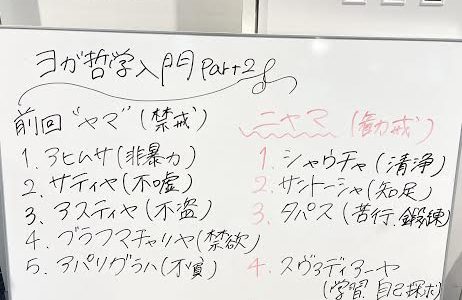 ヨガ哲学入門 Part2
前回 "ヤマ" (禁戒)
1. アヒムサ (非暴力)
2. サティヤ (不嘘)
3. アスティヤ (不盗)
4. ブラフマチャリヤ (禁欲)
5. アパリグラハ (不貪)
ニヤマ (勧戒)
1. シャウチャ (清浄)
2. サントーシャ (知足)
3. タパス (苦行、鍛錬)
4. スヴァディアーヤ
(学習、自己探求)